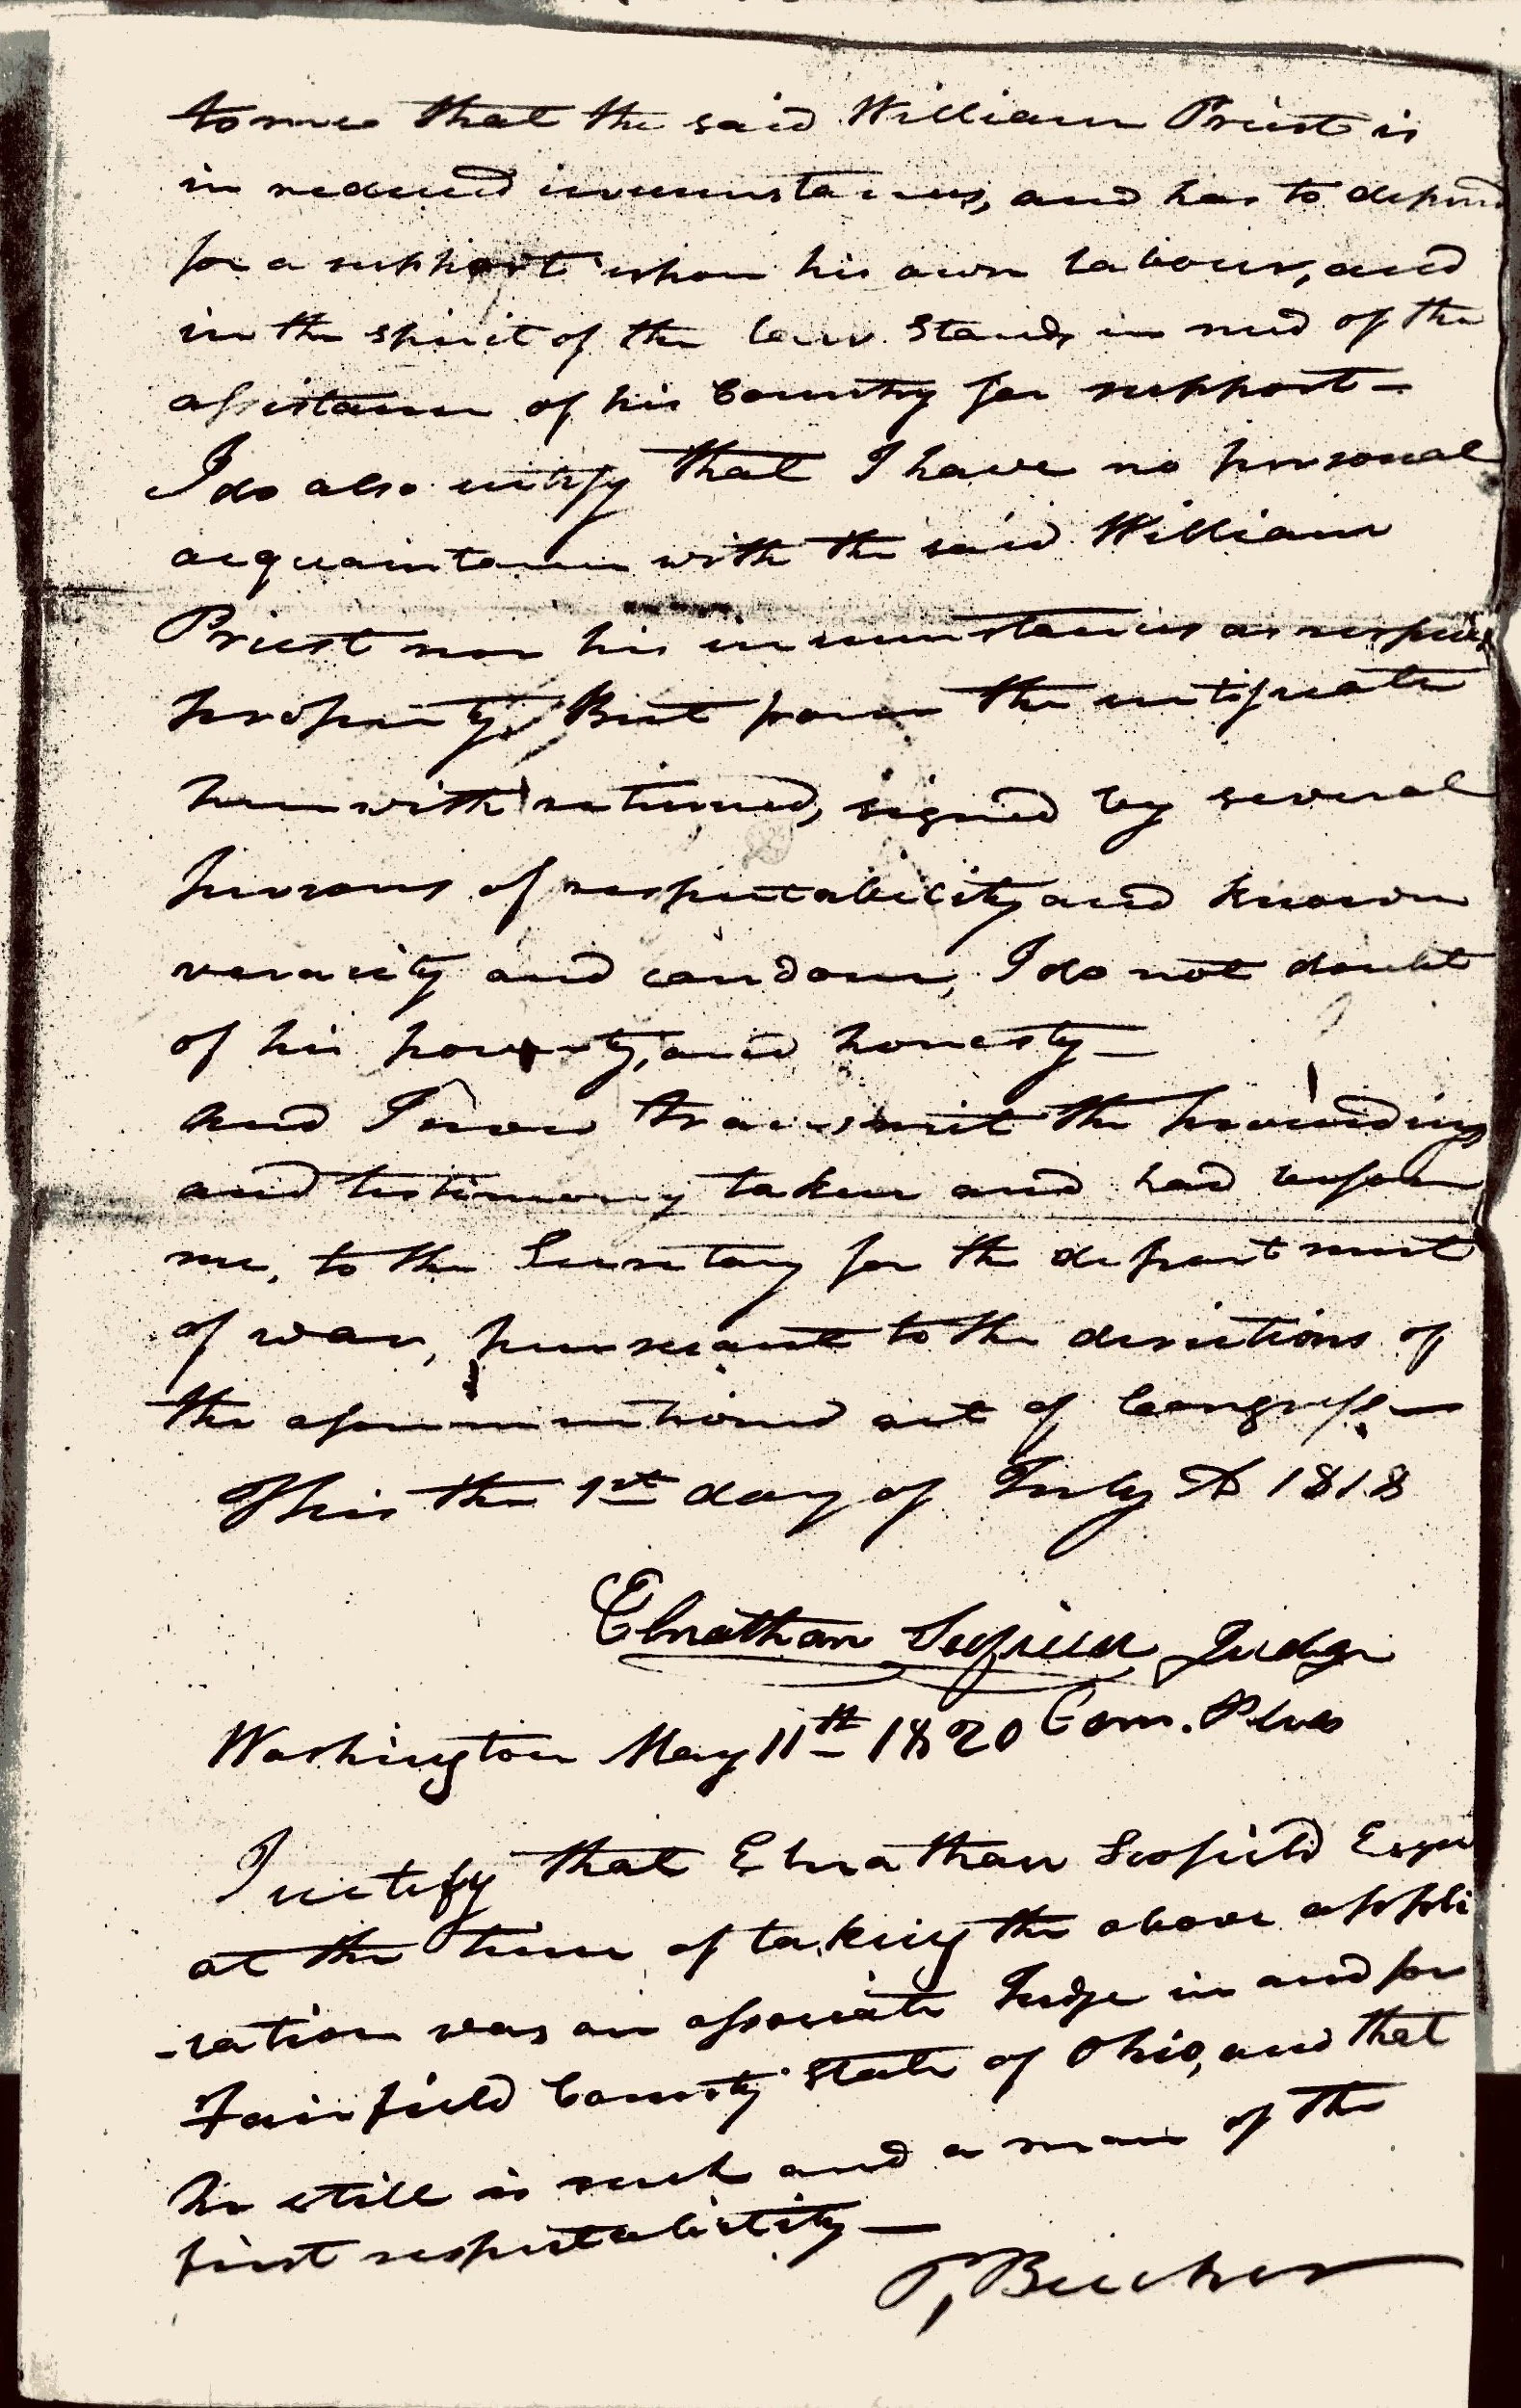 to me that the said William Priest is
in reduced circumstances, and has to depend
for a support uhon his own labour, and
in the spirit of the law stands in need of the
assistance of his Country for support—
I do also certify that I have no personal
acquaintance with the said William
Priest nor his circumstances as respects
property. But from the certificate
herewith returned, signed by several
persons of respectability and known
veracity and candour, I do not doubt
of his poverty, and honesty—
and I now transmit the proceedings
and testimony taken and had before
me, to the Secretary for the department
of war, pursuant to the directions of
the aforementioned act of Congress—
This the 1st day of July AD 1818
Elnathan Scofield Judge
Com. Pleas
Washington May 11th 1820
I certify that Elnathan Scofield Esqu
at the time of taking the above appli
-cation was an associate Judge in and for
Fairfield County State of Ohio, and that
he still is such and a man of the
first respectability—
P, Beecher